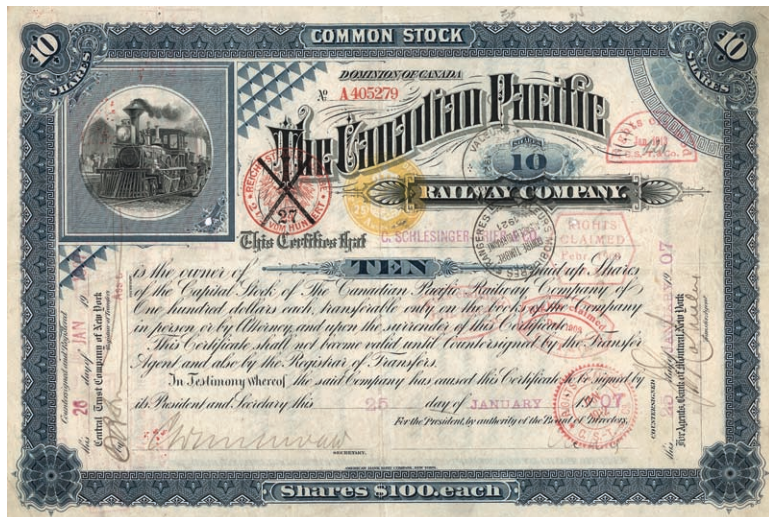 COMMON STOCK
10
SHARES
10
SHARES
DOMINION OF CANADA
No A405279
The Canadian Pacific
SHARES
10
RAILWAY COMPANY.
27
RIGHTS
CLAIMED
This Certifies that C. SCHLESINGER
TEN
is the owner of paid up Shares
of the Capital Stock of The Canadian Pacific Railway Company of
One hundred dollars each, transferable only on the books of the Company
in person or by Attorney and upon the surrender of this Certificate.
This Certificate shall not become valid until Countersigned by the Transfer
Agent and also by the Registrar of Transfers.
In Testimony whereof the said Company has caused this Certificate to be signed by
its President and Secretary this 25 day of JANUARY 1907
For the President, by authority of the Board of Directors,
SECRETARY.
Countersigned and Registered
this 26 day of JAN 19
Central Trust Company of New York
Registrar of Transfers
COUNTERSIGNED
this 25 day of JANUARY 1907
For Agents, Bank of Montreal, New York
Transfer Agent
AMERICAN BANK NOTE COMPANY, NEW YORK.
Shares $100. each